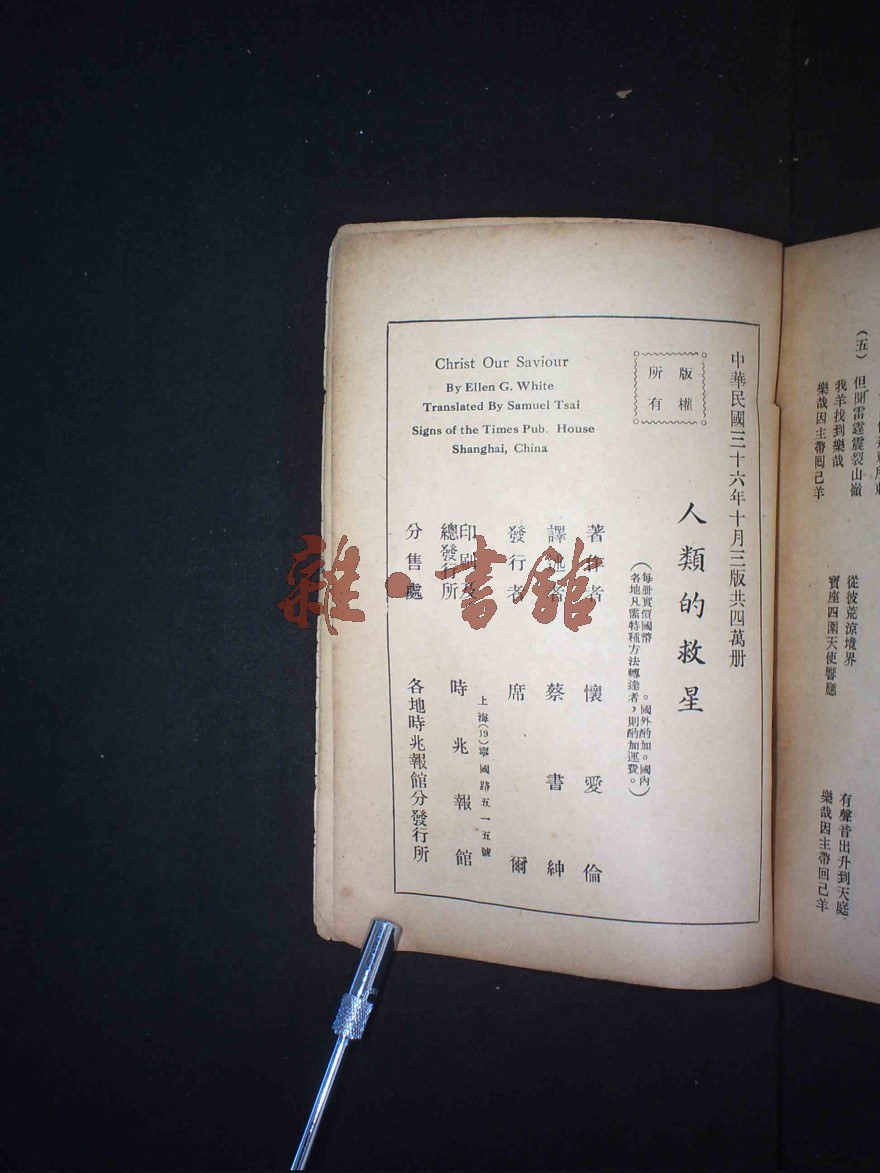 中華民國三十六年十月三版共四萬册
版權
所有
人類的救星
(每册實價國幣　。國外酌加。國內
各地凡需特種方法轉達者，則酌加運費。)
著作者　懷愛倫
譯述者　蔡書紳
發行者　席爾
印刷及
總發行所
上海(19)寧國路五一五號
時兆報館
分售處　各地時兆報館分發行所
Christ Our Saviour
By Ellen G. White
Translated By Samuel Tsai
Signs of the Times Pub. House
Shanghai, China
(五)　但聞雷霆震裂山嶺　從彼荒涼境界　有聲音出升到天庭
我羊找到樂哉　寶座四圍天使響應
樂哉因主帶回己羊　樂哉因主帶回己羊
雜·書館